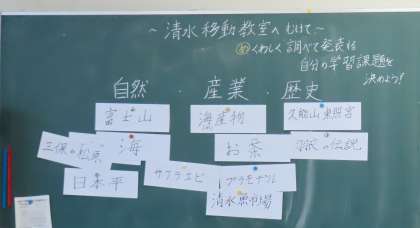 ～清水移動教室へむけて～
めくわしく調べて発表する
自分の学習課題を
決めよう！
自然・産業・歴史
富士山
海産物
久能山東照宮
三保の松原
海
お茶
羽衣の伝説
日本平
サクラエビ
プラモデル
清水魚市場